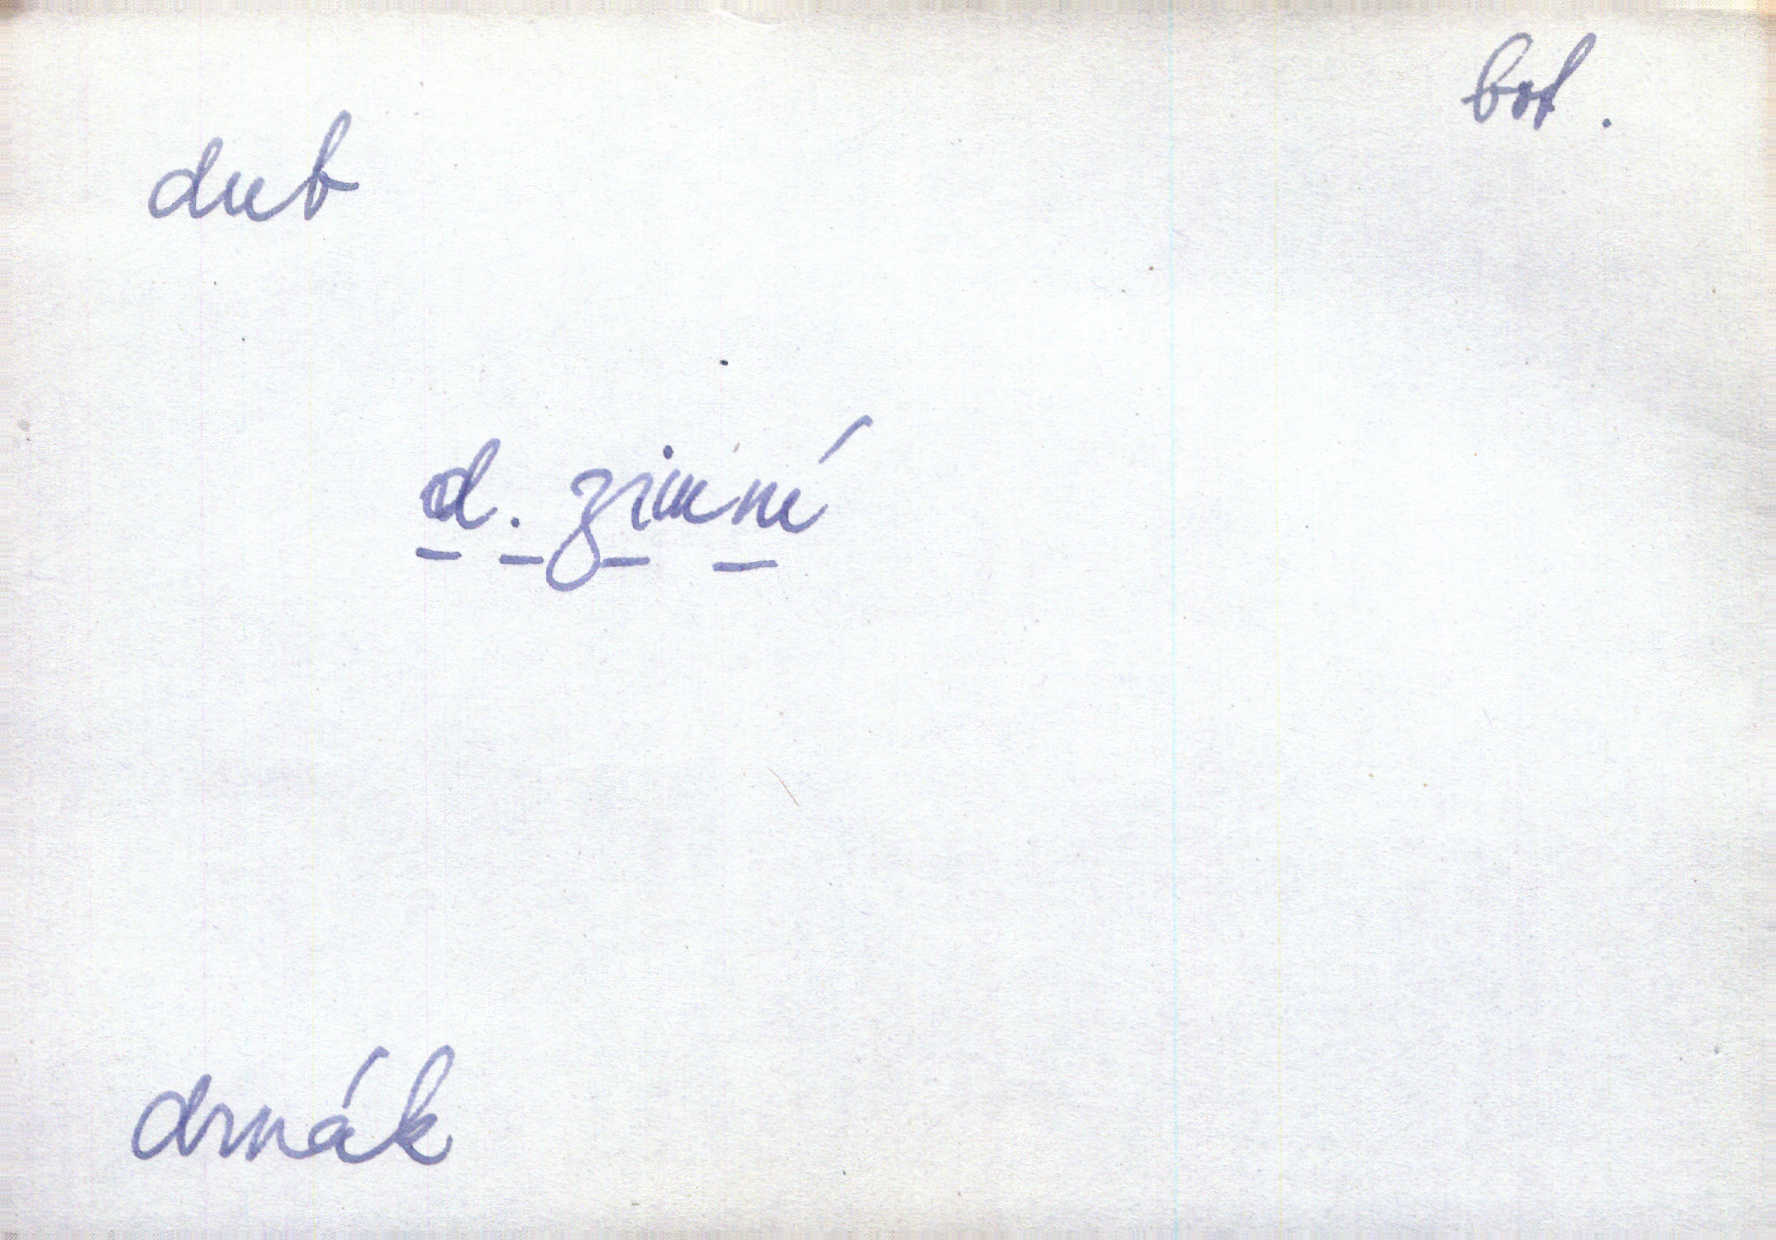 bot.
dub
d. zimní
drnák